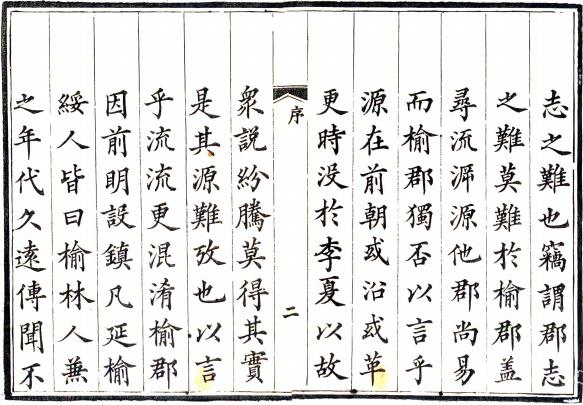 志之難也竊謂郡志
之難莫難於榆郡盖
尋流泝源他郡尚易
而榆郡獨否以言乎
源在前朝或沿或革
更時没於李夏以故
序
二
衆說紛騰莫得其實
是其源難攷也以言
乎流流更混淆榆郡
因前明設鎮凡延榆
綏人皆曰榆林人兼
之年代久遠傳聞不